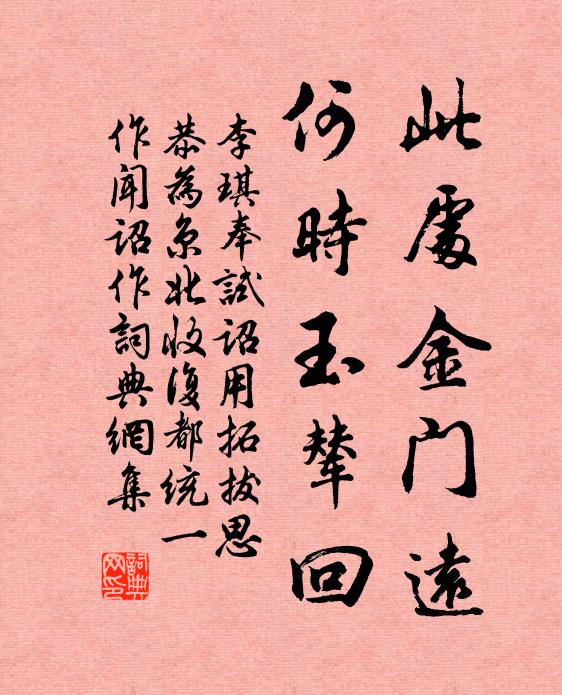 此處金门遠
何時玉輦回
李琪奉試詔用拓拔思
恭為京北收復都統一
作聞詔作詞典網集
詞典网印